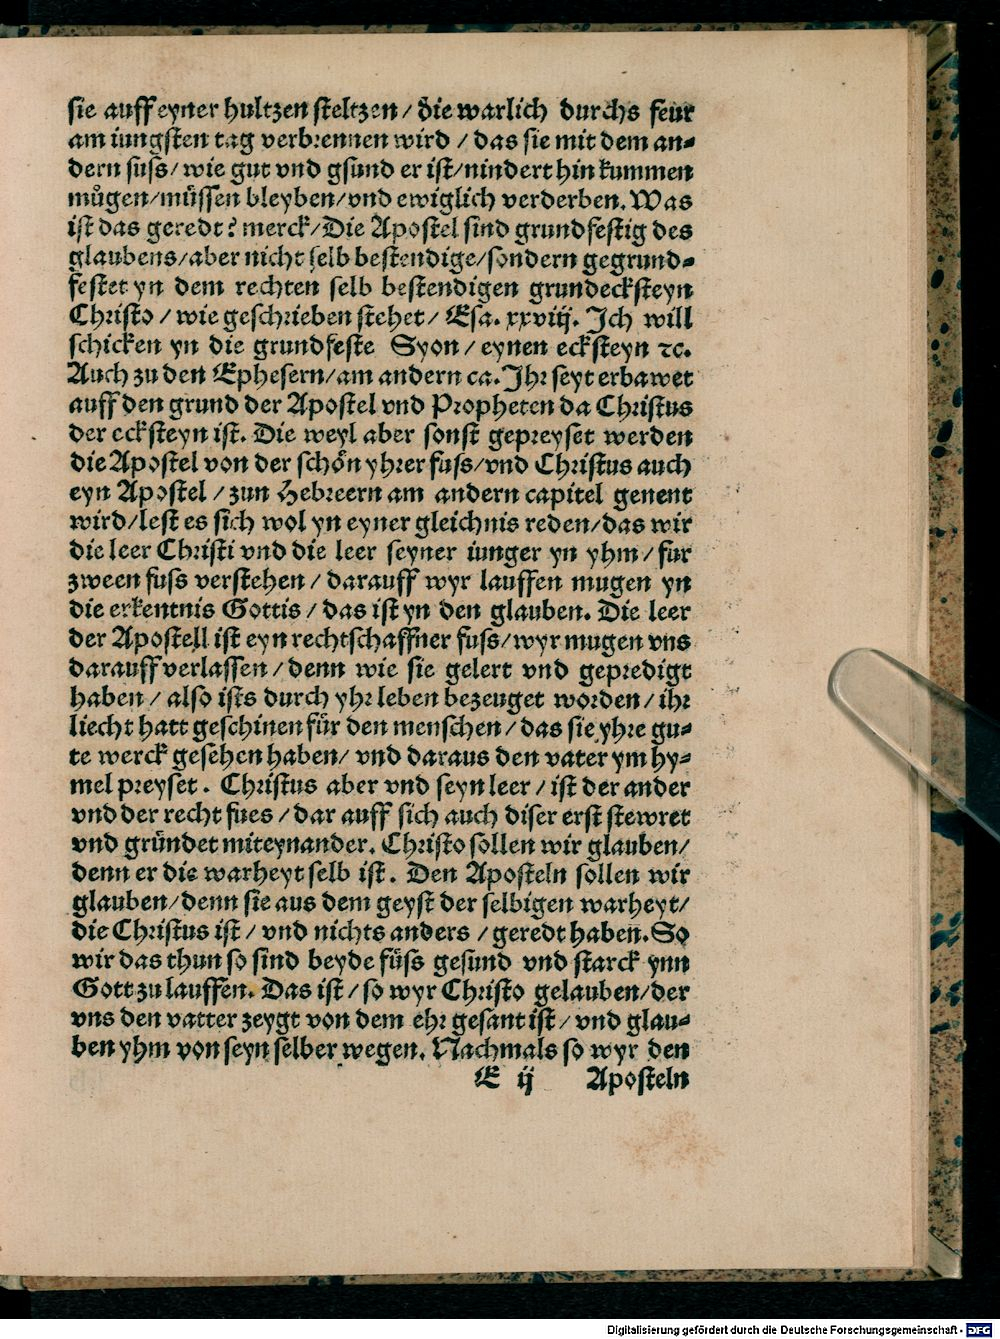 sie auff eyner hultzen steltzen / die warlich durchs feür
am iungsten tag verbrennen wird / das sie mit dem an-
dern fuss / wie gut vnd gsund er ist / nindert hin kummen
mügen / müssen bleyben / vnd ewiglich verderben. Was
ist das geredt? merck / Die Apostel sind grundfestig des
glaubens / aber nicht selb bestendige / sondern gegrund-
festet yn dem rechten selb bestendigen grundecksteyn
Christo / wie geschrieben stehet / Esa. xxviij. Ich will
schicken yn die grundfeste Syon / eynen ecksteyn ꝛc.
Auch zu den Ephesern / am andern ca. Ihr seyt erbawet
auff den grund der Apostel vnd Propheten da Christus
der ecksteyn ist. Die weyl aber sonst gepreyset werden
die Apostel von der schön yhrer fuss / vnd Christus auch
eyn Apostel / zun Hebreern am andern capitel genent
wird / lest es sich wol yn eyner gleichnis reden / das wir
die leer Christi vnd die leer seyner iunger yn yhm / fur
zween fuss verstehen / darauff wyr lauffen mugen yn
die erkentnis Gottis / das ist yn den glauben. Die leer
der Apostell ist eyn rechtschaffner fuss / wyr mugen vns
darauff verlassen / denn wie sie gelert vnd gepredigt
haben / also ists durch yhr leben bezeuget worden / ihr
liecht hatt geschinen für den menschen / das sie yhre gu-
te werck gesehen haben / vnd daraus den vater ym hy-
mel preyset. Christus aber vnd seyn leer / ist der ander
vnd der recht fues / dar auff sich auch diser erst stewret
vnd gründet miteynander. Christo sollen wir glauben /
denn er die warheyt selb ist. Den Aposteln sollen wir
glauben / denn sie aus dem geyst der selbigen warheyt /
die Christus ist / vnd nichts anders / geredt haben. So
wir das thun so sind beyde füss gesund vnd starck ynn
Gott zu lauffen. Das ist / so wyr Christo gelauben / der
vns den vatter zeygt von dem ehr gesant ist / vnd glau-
ben yhm von seyn selber wegen. Nachmals so wyr den
E ij Aposteln
Digitalisierung gefördert durch die Deutsche Forschungsgemeinschaft - DFG